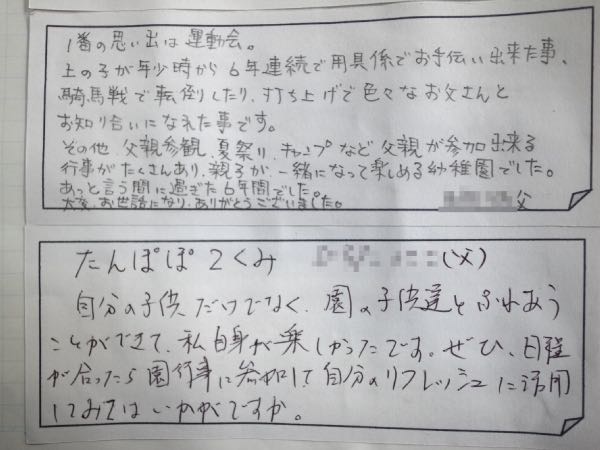 1番の思い出は運動会。
上の子が年少時から6年連続で用具係でお手伝い出来た事、
騎馬戦で転倒したり、打ち上げで色々なお父さんと
お知り合いになれた事です。
その他、父親参観、夏祭り、キャンプなど父親が参加出来る
行事がたくさんあり、親子が、一緒になって楽しめる幼稚園でした。
あっと言う間に過ぎた6年間でした。
大変お世話になり、ありがとうございました。
父
たんぽぽ2くみ (父)
自分の子供だけでなく、園の子供達とふれあう
ことができて、私自身が楽しかったです。ぜひ、日程
が合ったら園行事に参加して自分のリフレッシュに活用
してみてはいかがですか。